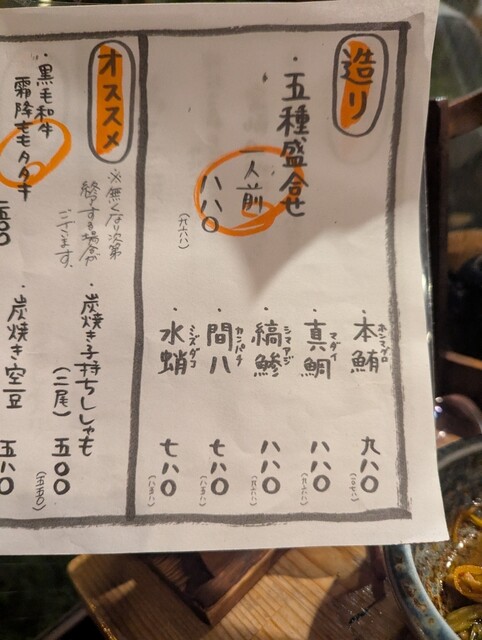 造り
・五種盛合せ
一人前
八八〇
(九六八)
・本鮪
ホンマグロ
九八〇
・真鯛
マダイ
八八〇
(九六八)
・縞鯵
シマアジ
八八〇
(九六八)
・間八
カンパチ
七八〇
(八五八)
・水蛸
ミズダコ
七八〇
(八五八)
オススメ
※無くなり次第
終了する場合が
ございます。
・黒毛和牛
霜降ももタタキ
・炭焼き子持ちししゃも
(二尾)
五〇〇
(五五〇)
・炭焼き空豆
五八〇